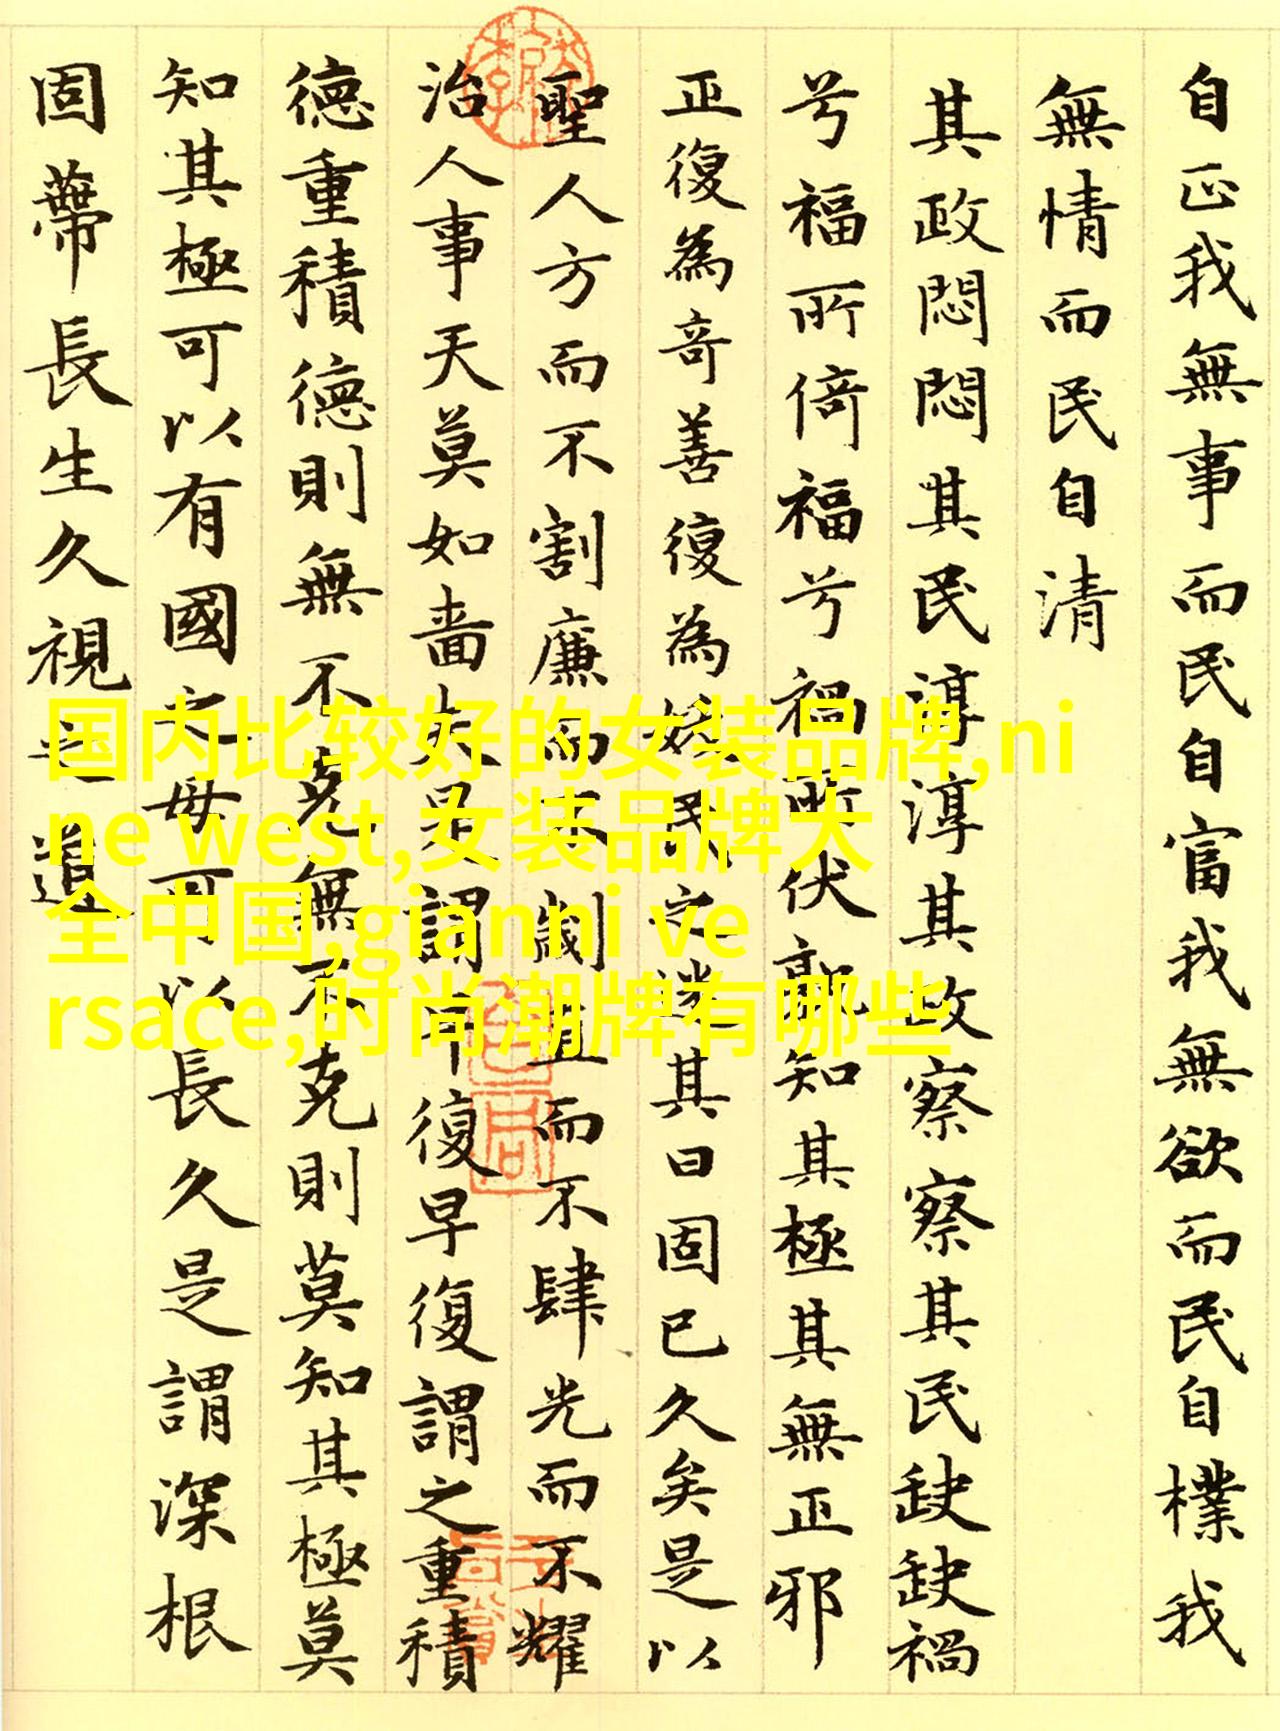 自正我無事而民自富我無欲而民自樸我
無情而民自清
其政悶悶其民淳淳其政察察其民缺缺禍
兮福所倚福兮禍所伏孰知其極其無正邪
正復為奇善復為妖民之迷其日固已久矣是以
聖人方而不割廉而不劌直而不肆光而不耀
治人事天莫如嗇夫是謂早復早復謂之重積
德重積德則無不克無不克則莫知其極莫
知其極可以有國之母可以長久是謂深根
固蔕長生久視之道
国内比较好的女装品牌,ni
ne west,女装品牌大
全中国,gianni ve
rsace,时尚潮牌有哪些